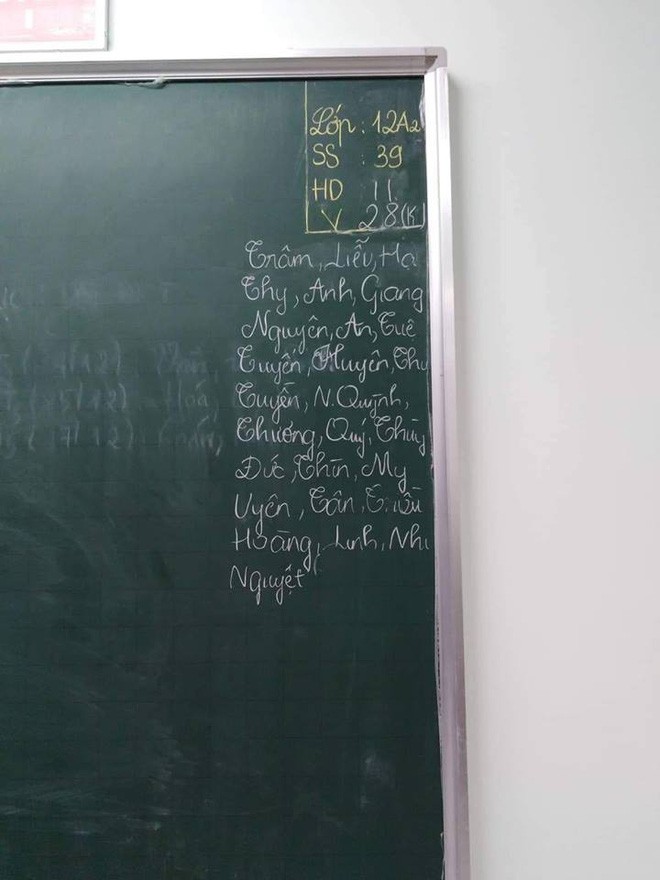 Lớp : 12A2
SS : 39
HD 11
V 28(K)
Trâm, Liễu, Hạ
Thy, Anh, Giang
Nguyên, An, Tuê
Tuyến, Huyên, Thu
Tuyển, N.Quỳnh,
Thương, Quý, Thùy
Đức, Thìn, My
Uyên, Tân, Triều
Hoàng, Linh, Nhi
Nguyệt